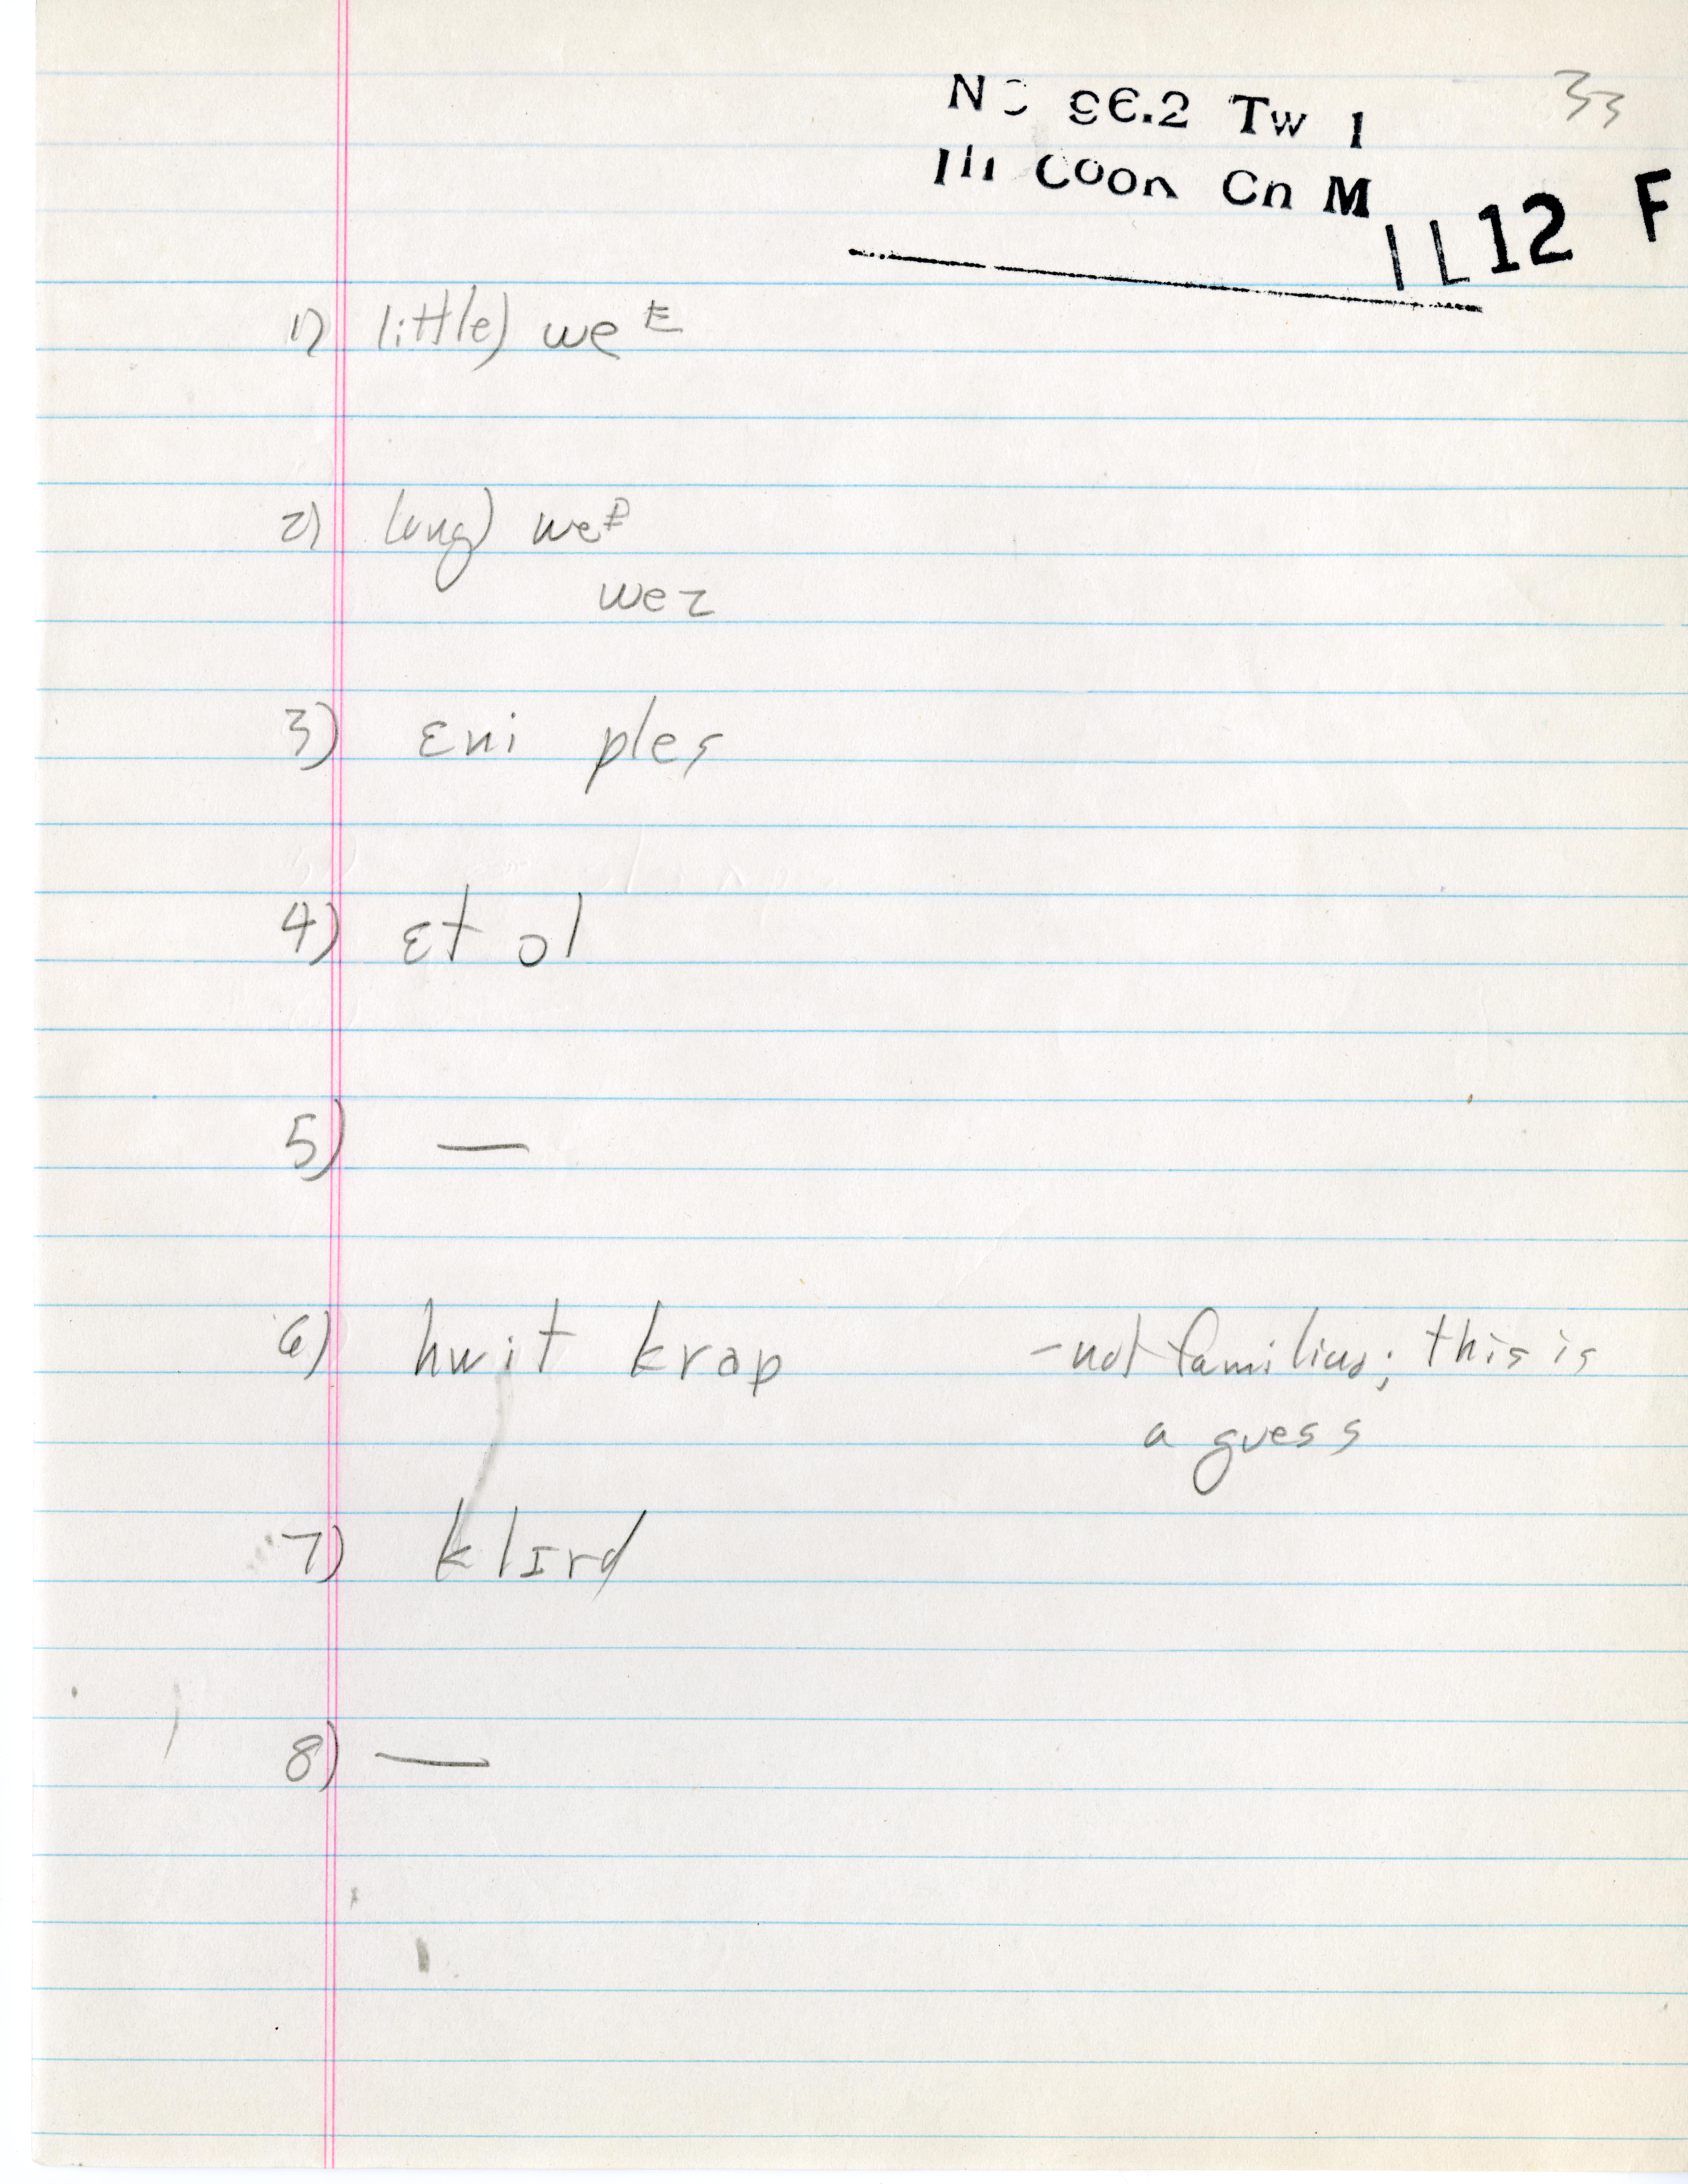 33
N 96.2 Tw 1
Coon Cn M
IL12 F
1) little) we ᴱ
2) long) we
wez
3) ɛni ples
4) ɛt ol
5) —
6) hwit krap - not familiar; this is
a guess
7) klɪrd
8) —